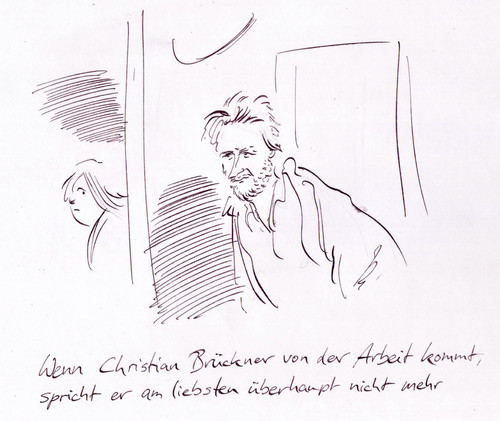 Wenn Christian Brückner von der Arbeit kommt,
spricht er am liebsten überhaupt nicht mehr